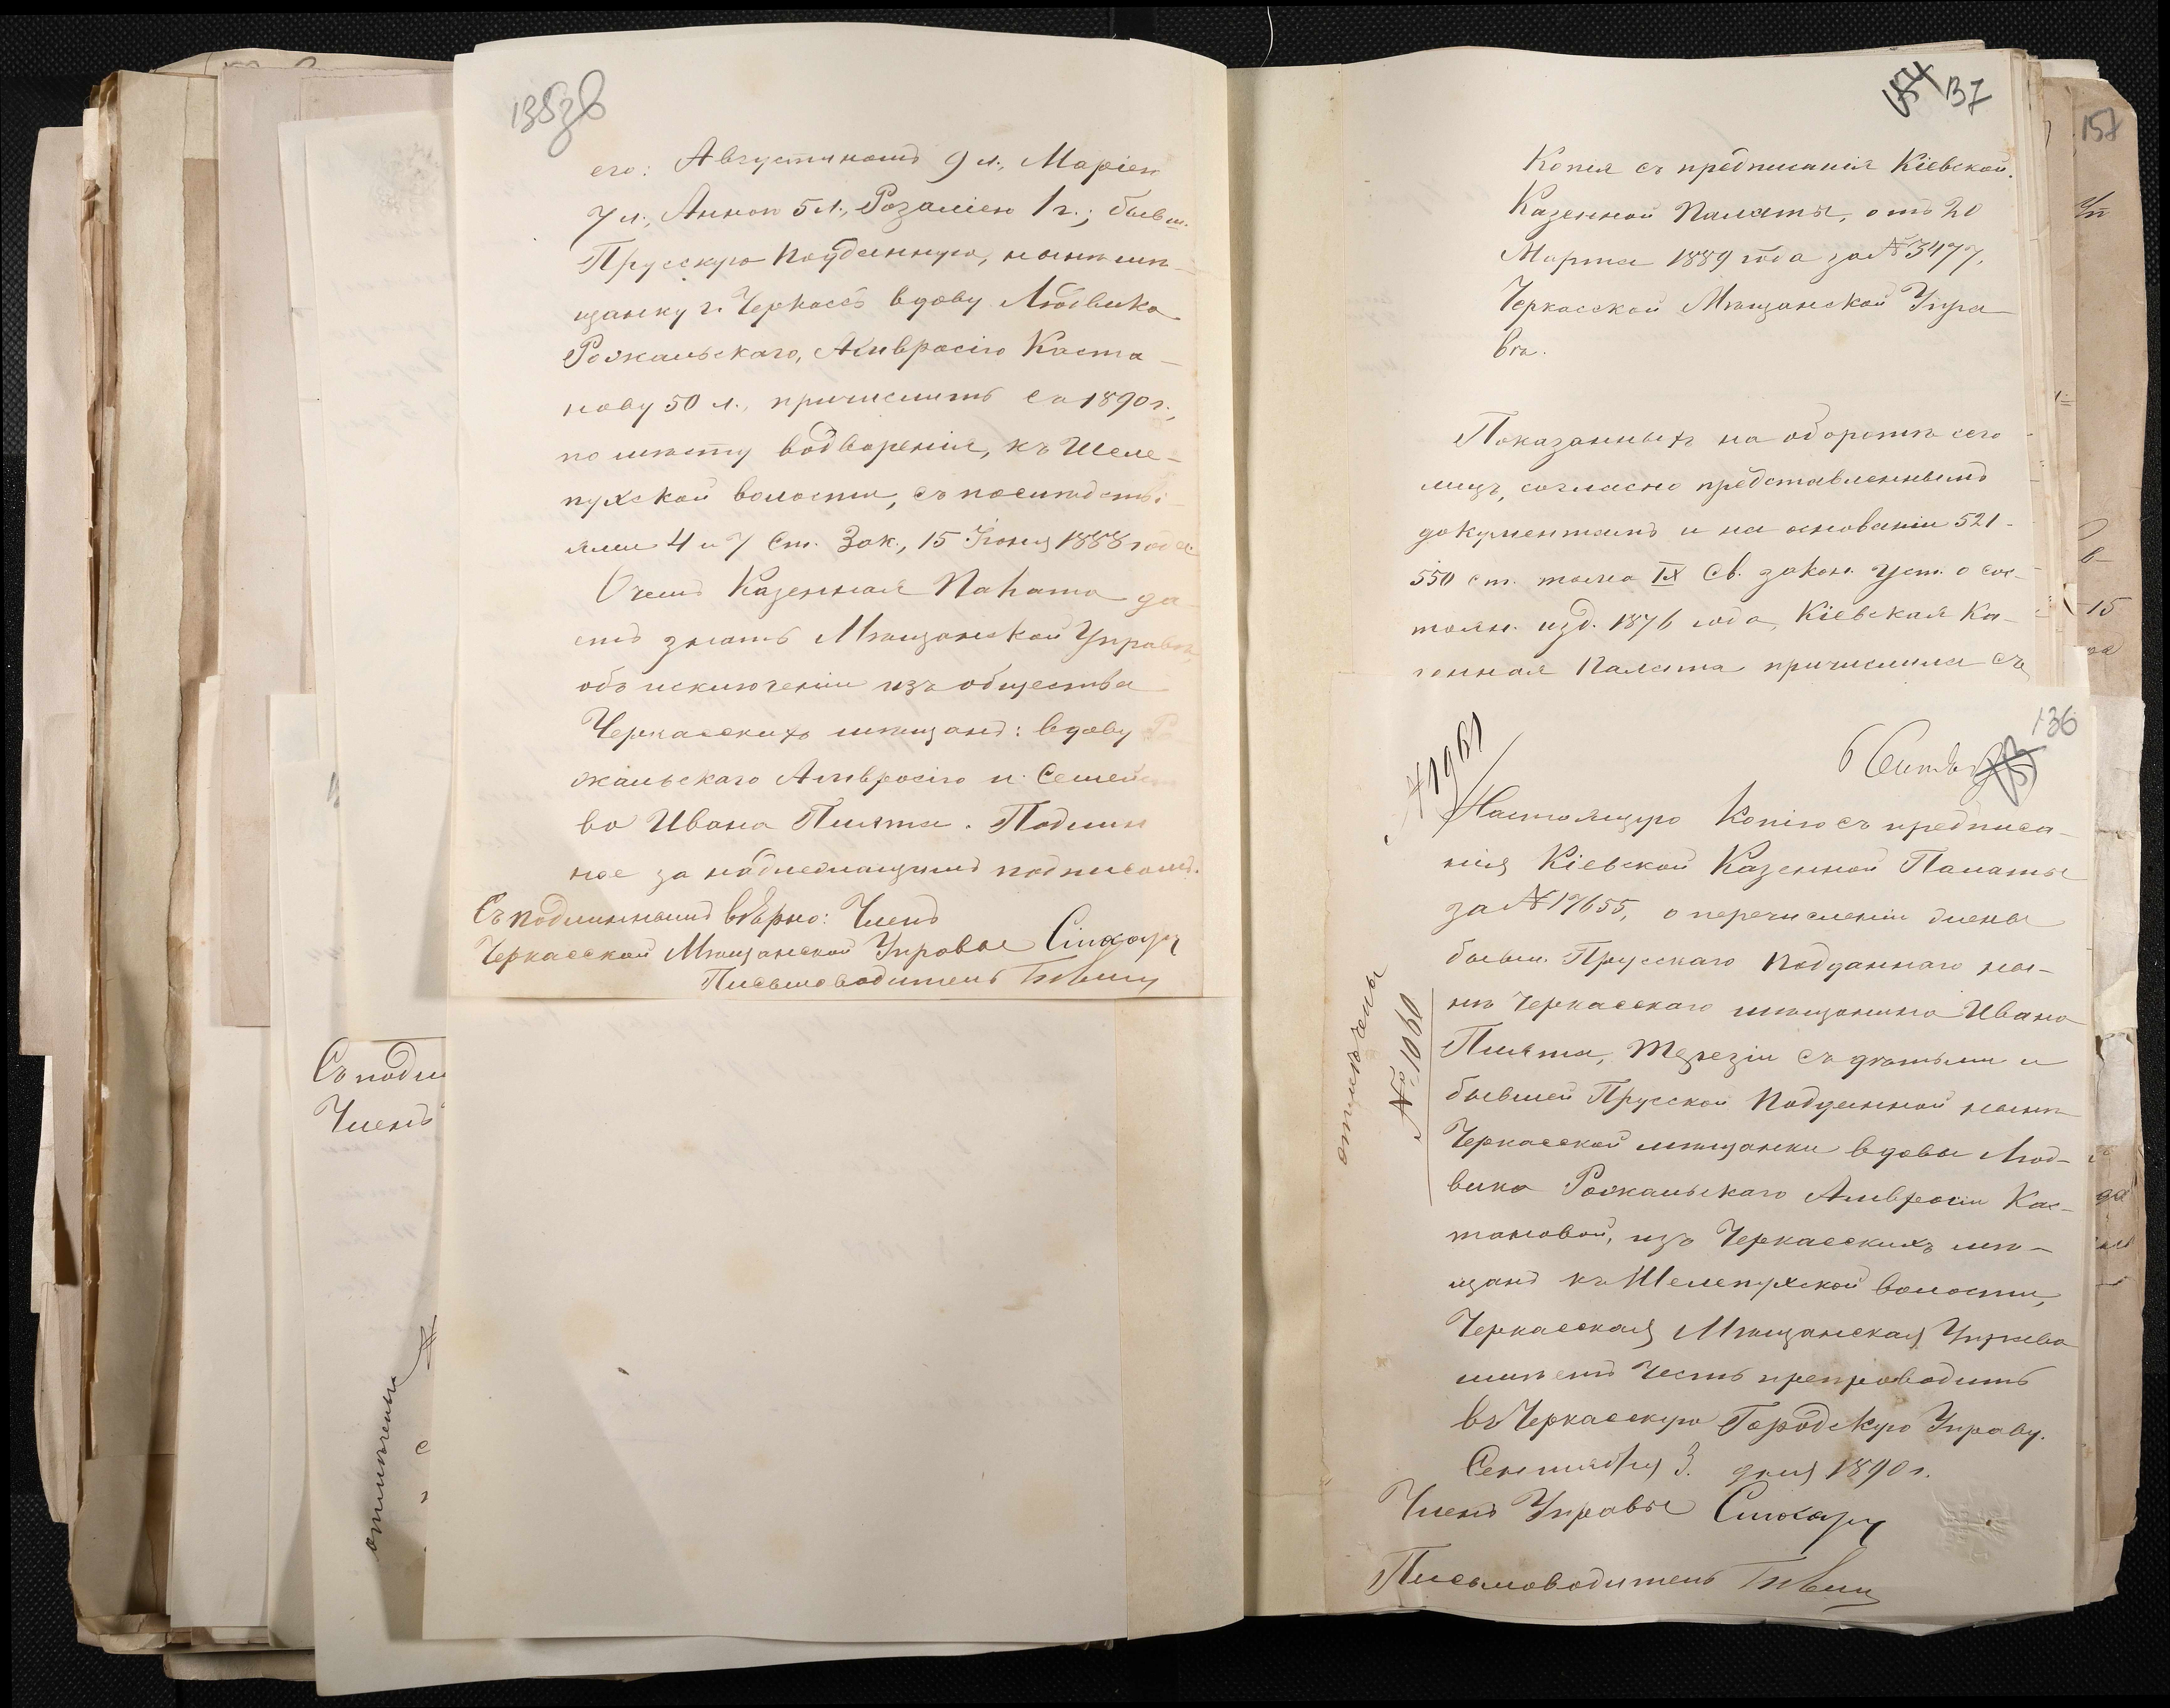 135об
его: Августиномъ 9 л., Маріею
7 л., Анною 5 л., Розаліею 1 г.; бывш.
Прусскую подданную, нынѣ мѣ-
щанку г. Черкассъ вдову Людвика
Рожальскаго, Амвросію Каста-
нову 50 л., причислить съ 1890 г.,
по мѣсту водворенія, къ Шеле-
пухской волости, съ послѣдстві-
ями 4 и 7 ст. Зак., 15 Іюня 1888 года.
О чемъ Казенная Палата да-
етъ знать Мѣщанской Управѣ,
объ исключеніи изъ общества
Черкасскихъ мѣщанъ: вдову Р
жальскаго Амвросію и Семейст
во Ивана Пилята. Подлин
ное за надлежащимъ подписомъ.
Съ подлиннымъ вѣрно: Членъ
Черкасской Мѣщанской Управы
Письмоводитель
Съ подли
Членъ
отмѣчены
154 137
Копія съ предписанія Кіевской
Казенной Палаты, отъ 20
Марта 1889 года за № 3477,
Черкасской Мѣщанской Упра-
вѣ.
Показанныхъ на оборотѣ сего
лицъ, согласно представленнымъ
документамъ и на основаніи 521-
550 ст. тома IX Св. закон. уст. о сос-
тоян. изд. 1876 года, Кіевская Ка-
зенная Палата причислила съ
157
15
136
6 Сентяб
№ 1961
Настоящую Копію съ предписа-
нія Кіевской Казенной Палаты
за № 17655, о перечисленіи жены
бывш. Прусскаго Подданнаго ны-
нѣ Черкасскаго мѣщанина Ивана
Пилята, Терезіи съ дѣтьми и
бывшей Прусской Подданной нынѣ
Черкасской мѣщанки вдовы Люд-
вика Рожальскаго Амвросіи Кас-
тановой, изъ Черкасскихъ мѣ-
щанъ къ Шелепухской волости,
Черкасская Мѣщанская Управа
имѣетъ честь препроводить
въ Черкасскую Городскую Управу.
Сентября 3. дня 1890 г.
Членъ Управы
Письмоводитель
отмѣчены
№ 1060